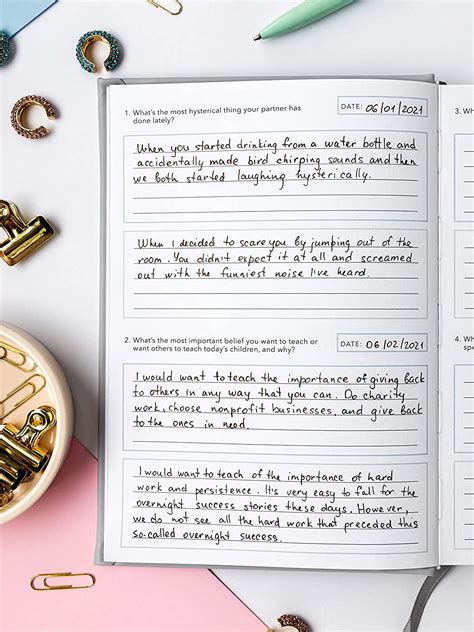 1. What's the most hysterical thing your partner has
done lately?
DATE: 06/01/2021
When you started drinking from a water bottle and
accidentally made bird chirping sounds and then
we both started laughing hysterically.
When I decided to scare you by jumping out of the
room. You didn't expect it at all and screamed
out with the funniest noise I've heard.
2. What's the most important belief you want to teach or
want others to teach today's children, and why?
DATE: 06/02/2021
I would want to teach the importance of giving back
to others in any way that you can. Do charity
work, choose nonprofit businesses, and give back
to the ones in need.
I would want to teach of the importance of hard
work and persistence. It's very easy to fall for the
overnight success stories these days. However,
we do not see all the hard work that preceded this
so-called overnight success.
3. Wh
4.
spe